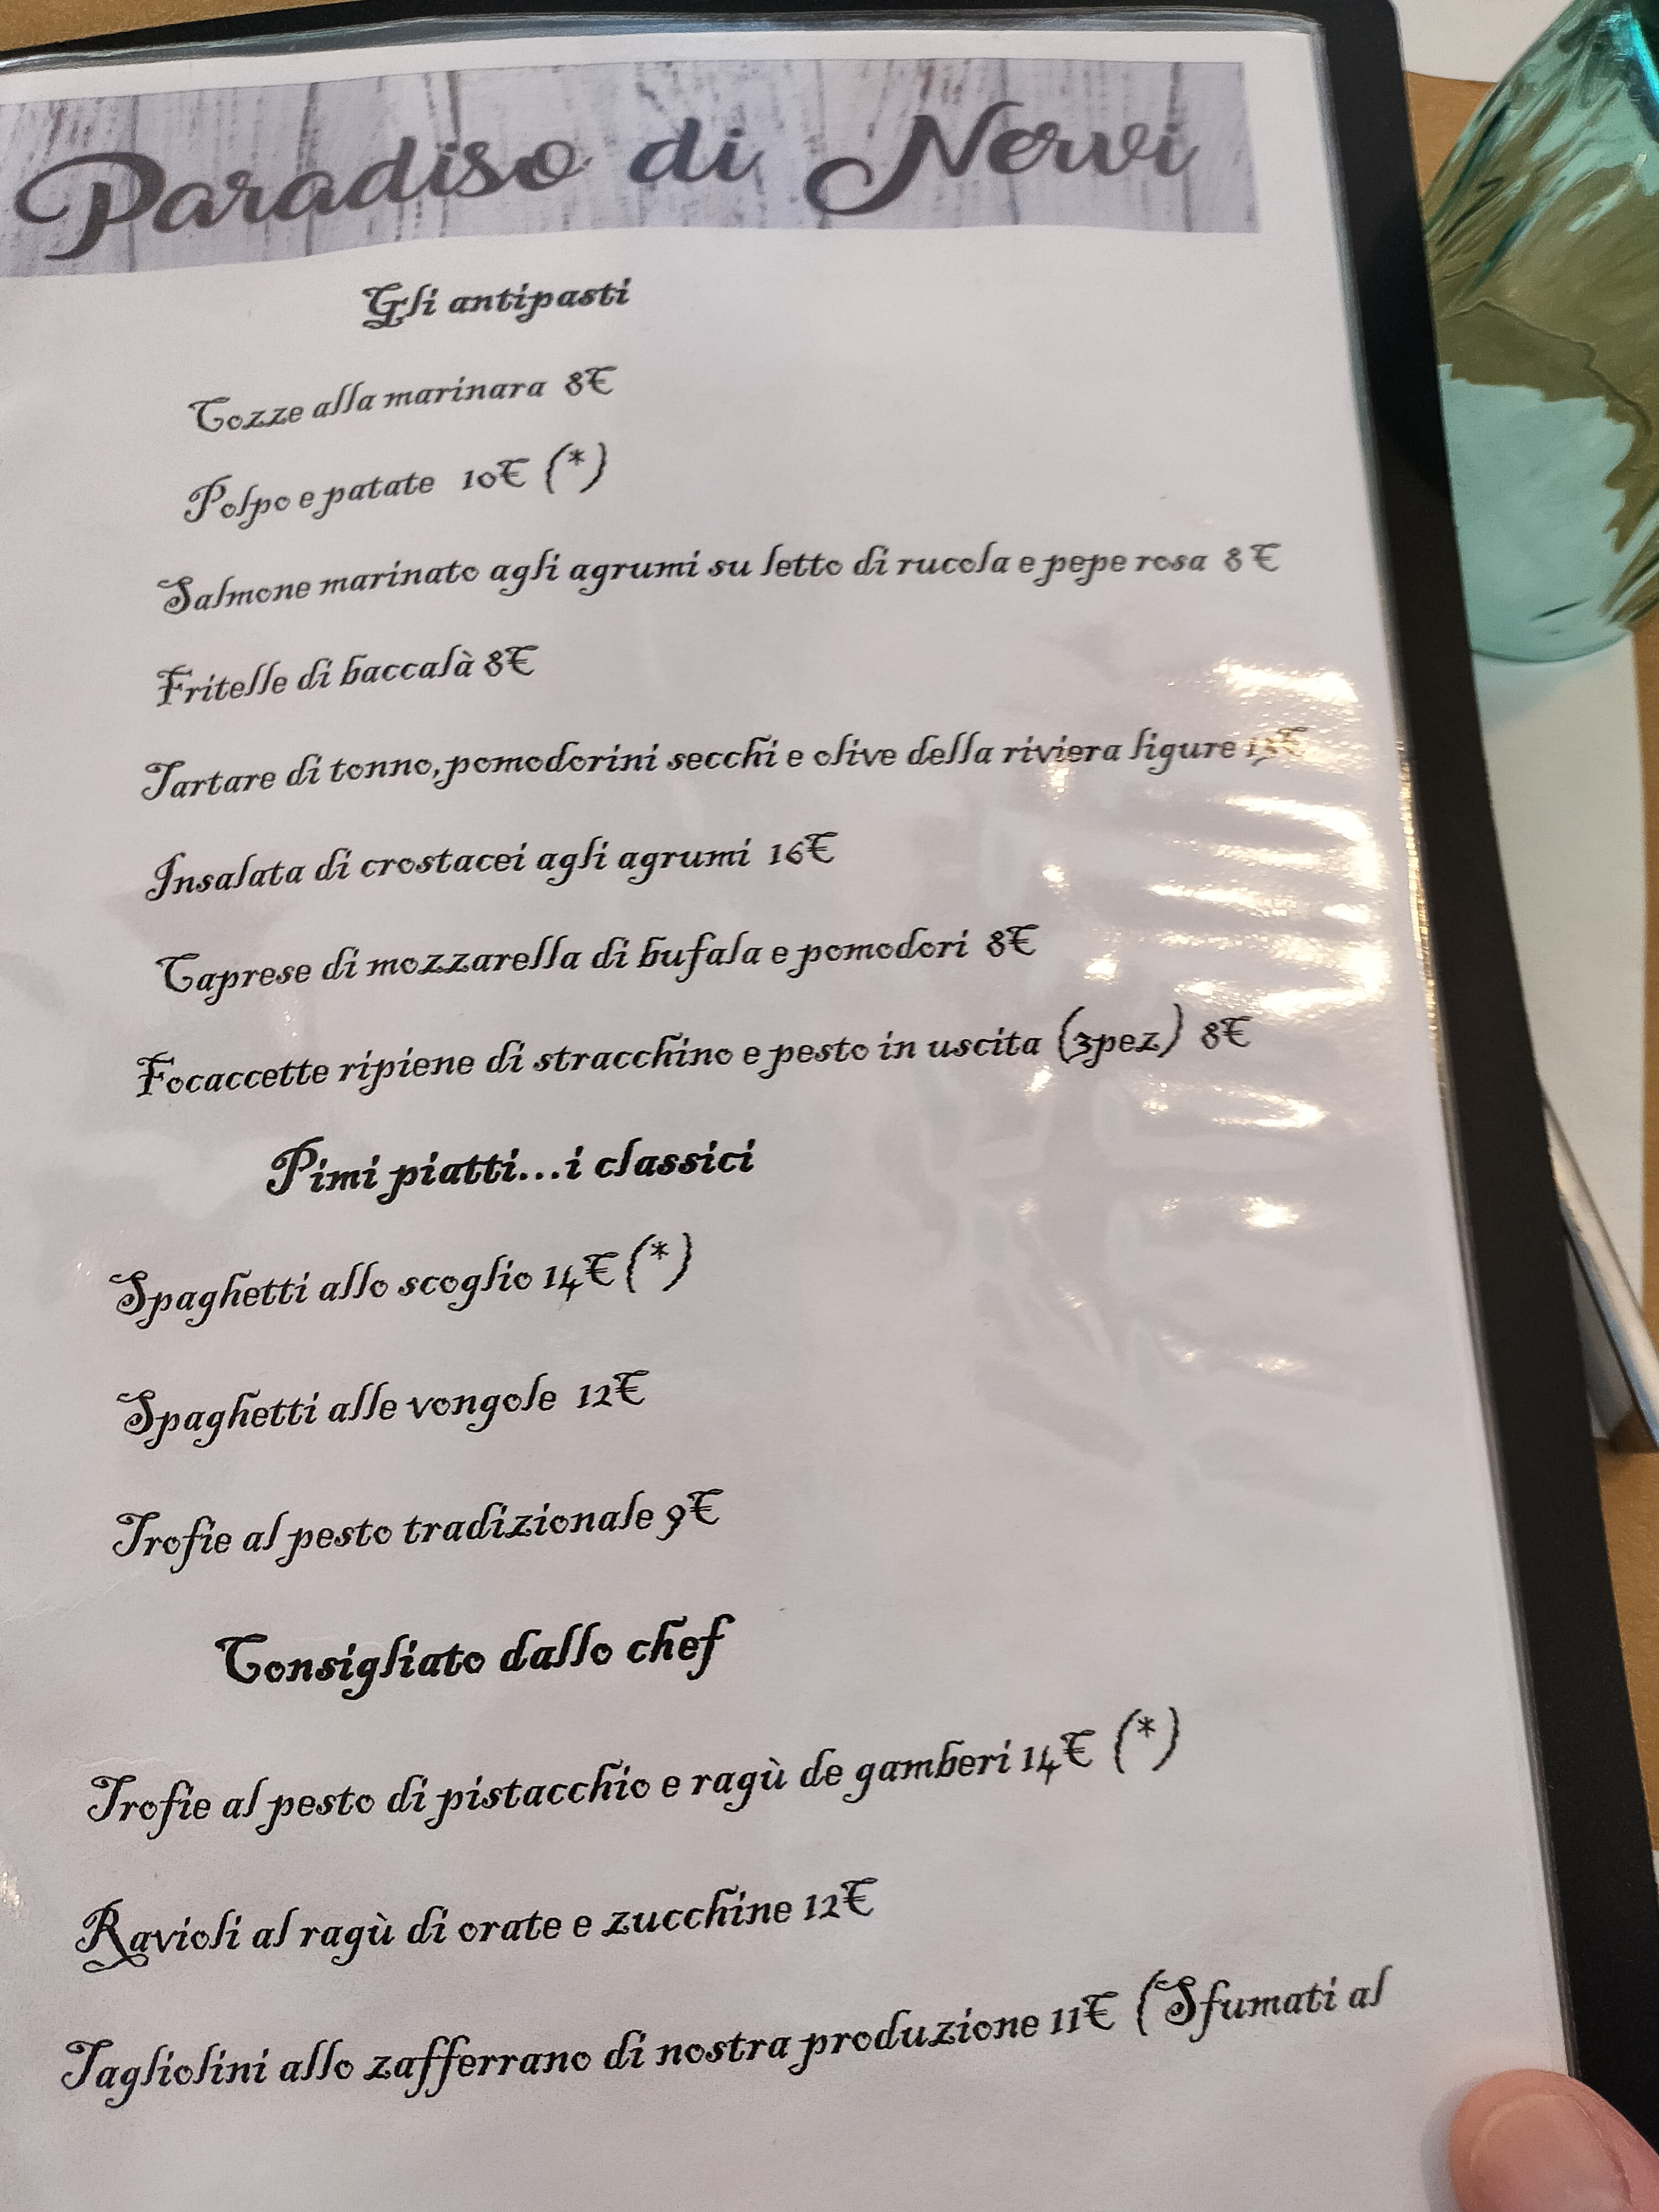 Paradiso di Nervi
Gli antipasti
Cozze alla marinara 8€
Polpo e patate 10€ (*)
Salmone marinato agli agrumi su letto di rucola e pepe rosa 8€
Fritelle di baccalà 8€
Tartare di tonno, pomodorini secchi e olive della riviera ligure
Insalata di crostacei agli agrumi 16€
Caprese di mozzarella di bufala e pomodori 8€
Focaccette ripiene di stracchino e pesto in uscita (3pez) 8€
Pimi piatti...i classici
Spaghetti allo scoglio 14€ (*)
Spaghetti alle vongole 12€
Trofie al pesto tradizionale 9€
Consigliato dallo chef
Trofie al pesto di pistacchio e ragù de gamberi 14€ (*)
Ravioli al ragù di orate e zucchine 12€
Tagliolini allo zafferrano di nostra produzione 11€ (Sfumati al